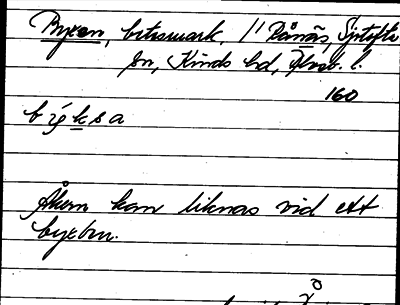 Byxan, betesmark, // Rånäs, Sjötofta
sn, Kinds hd, Älvsb. l.
160
býksa
Åkern kan liknas vid ett
byxben.